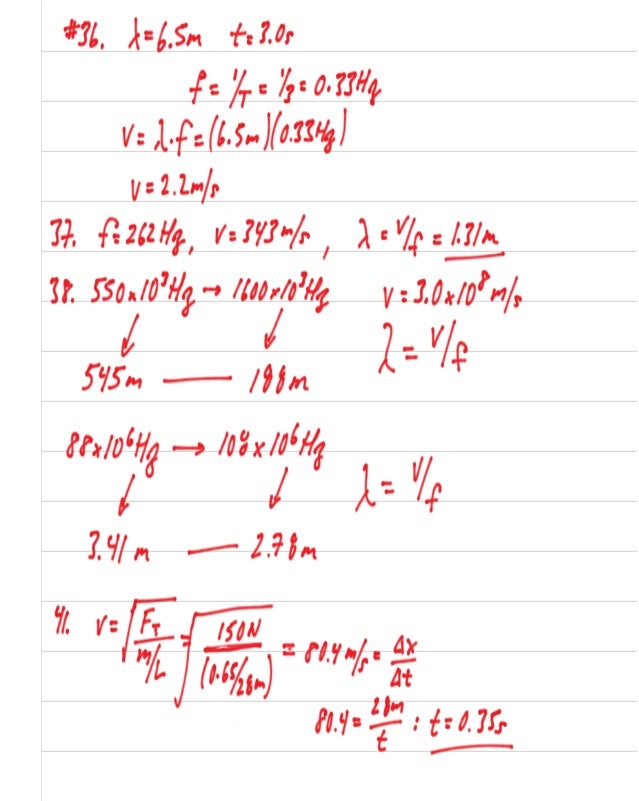 #36. λ=6.5m t=3.0s
f = 1/T = 1/3 = 0.33Hz
v = λ·f = (6.5m)(0.33Hz)
v = 2.2m/s
37. f=262Hz, v=343m/s, λ = v/f = 1.31m
38. 550x10³Hz → 1600x10³Hz v = 3.0x10⁸m/s
↓ ↓ λ = v/f
545m — 188m
88x10⁶Hz → 108x10⁶Hz
↓ ↓ λ = v/f
3.41m — 2.78m
41. v = √(F_T/(m/L)) = √(150N/(0.65/28m)) = 80.4m/s = Δx/Δt
80.4 = 28m/t : t=0.35s